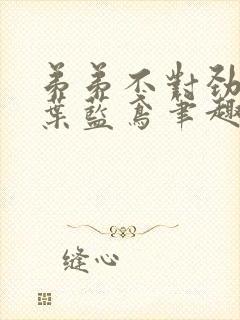 弟弟不對勁
葉藍鳶筆趣
缝心